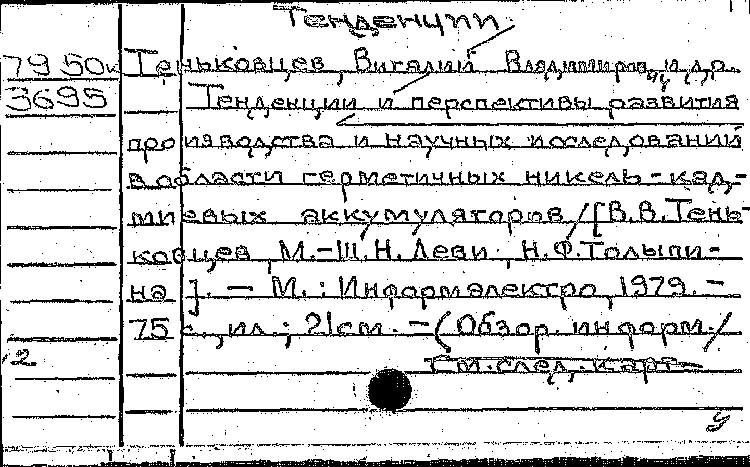 Тенденции
79 50к Теньковцев, Виталий Владимиров. и др.
3695 Тенденции и перспективы развития
производства и научных исследований
в области герметичных никель-кад-
миевых аккумуляторов/[В.В.Тень-
ковцев, М.-Ш.Н. Леви, Н.Ф.Толыпи-
на]. — М.: Информэлектро, 1979. –
75 с., ил.; 21см. – (Обзор. информ./
2 См. след. карт.